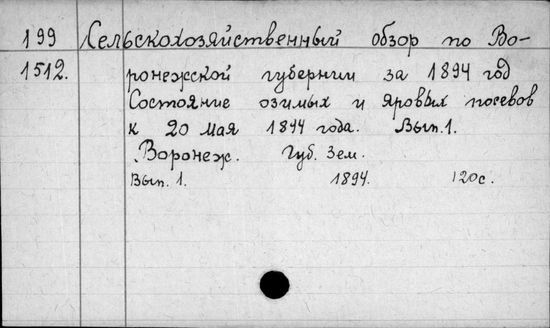 199 Сельскохозяйственный обзор по Во-
1512. ронежской губернии за 1894 год
Состояние озимых и яровых посевов
к 20 мая 1894 года. Вып. 1.
Воронеж. Губ. Зем.
Вып. 1. 1894. 120 с.